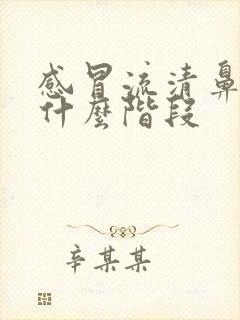 感冒流清鼻
什麼階段
辛某某